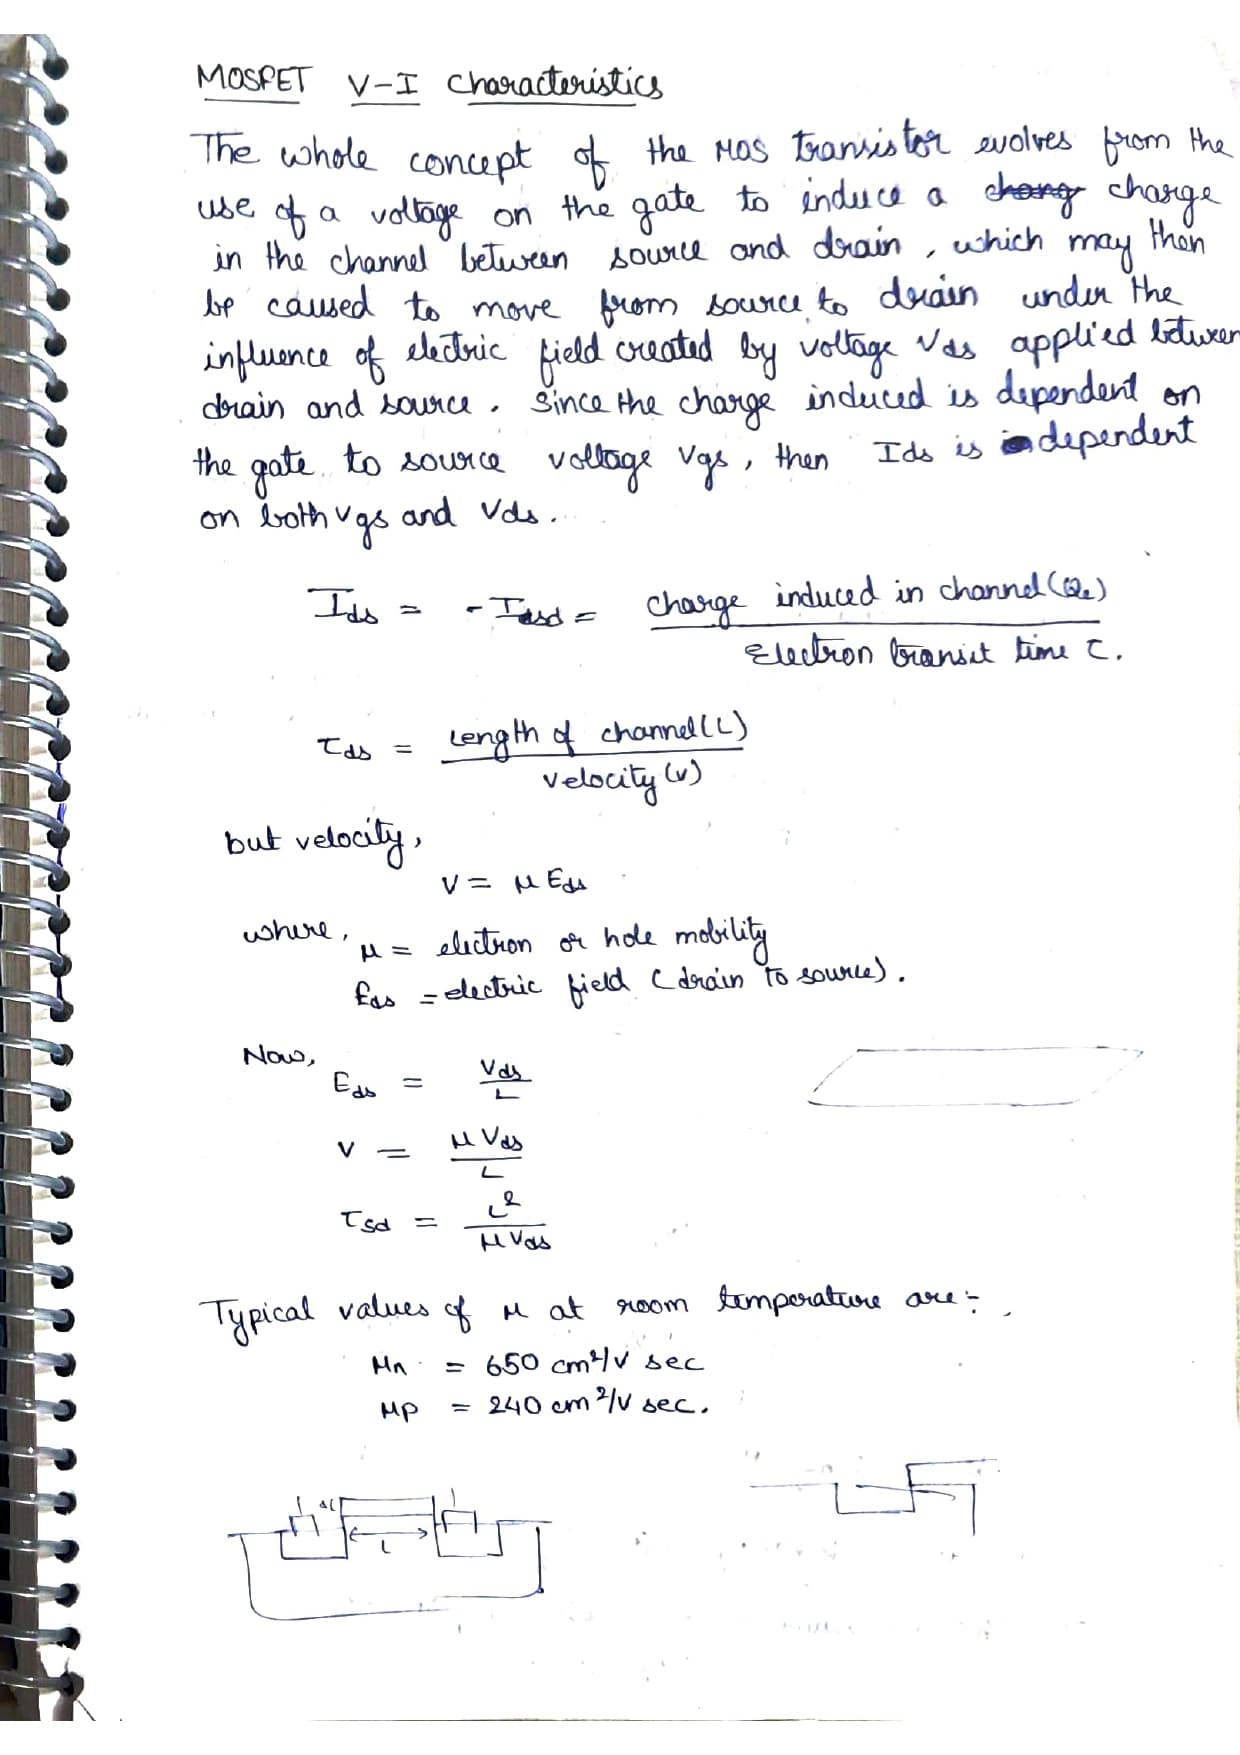 MOSFET V-I Characteristics
The whole concept of the MOS transistor evolves from the
use of a voltage on the gate to induce a chang charge
in the channel between source and drain, which may then
be caused to move from source to drain under the
influence of electric field created by voltage Vds applied between
drain and source. Since the charge induced is dependent on
the gate to source voltage Vgs, then Ids is dependent
on both Vgs and Vds.
Ids = - Isd = charge induced in channel (Qc)
Electron transit time τ.
τds = Length of channel (L)
Velocity (v)
but velocity,
V = μ Eds
where, μ = electron or hole mobility
Eds = electric field (drain to source).
Now,
Eds = Vds
L
V = μ Vds
L
τsd = L²
μ Vds
Typical values of μ at room temperature are :-
μn = 650 cm²/V sec
μp = 240 cm²/V sec.
L